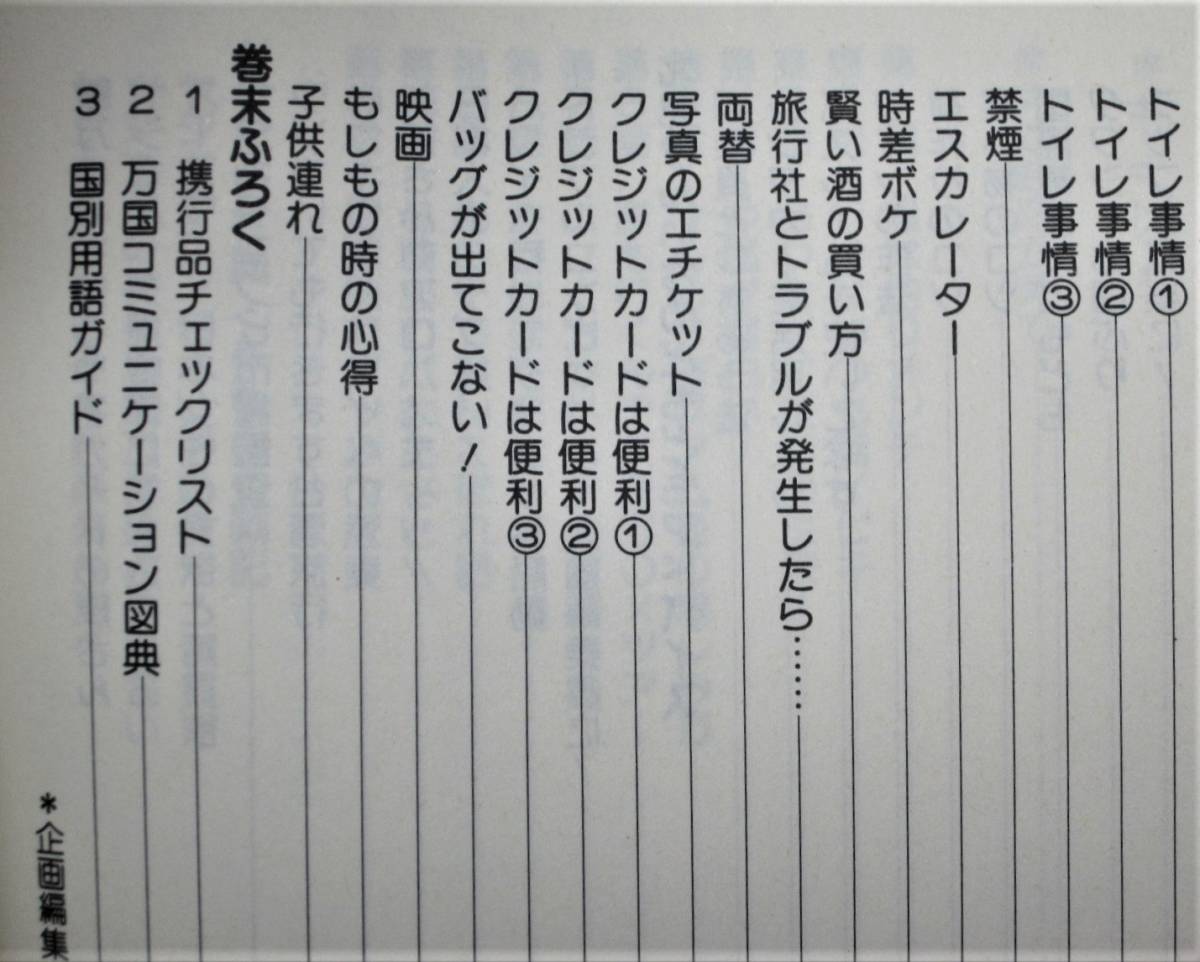 トイレ事情①
トイレ事情②
トイレ事情③
禁煙
エスカレーター
時差ボケ
賢い酒の買い方
旅行社とトラブルが発生したら……
両替
写真のエチケット
クレジットカードは便利①
クレジットカードは便利②
クレジットカードは便利③
バッグが出てこない！
映画
もしもの時の心得
子供連れ
巻末ふろく
1 携行品チェックリスト
2 万国コミュニケーション図典
3 国別用語ガイド
＊企画編集